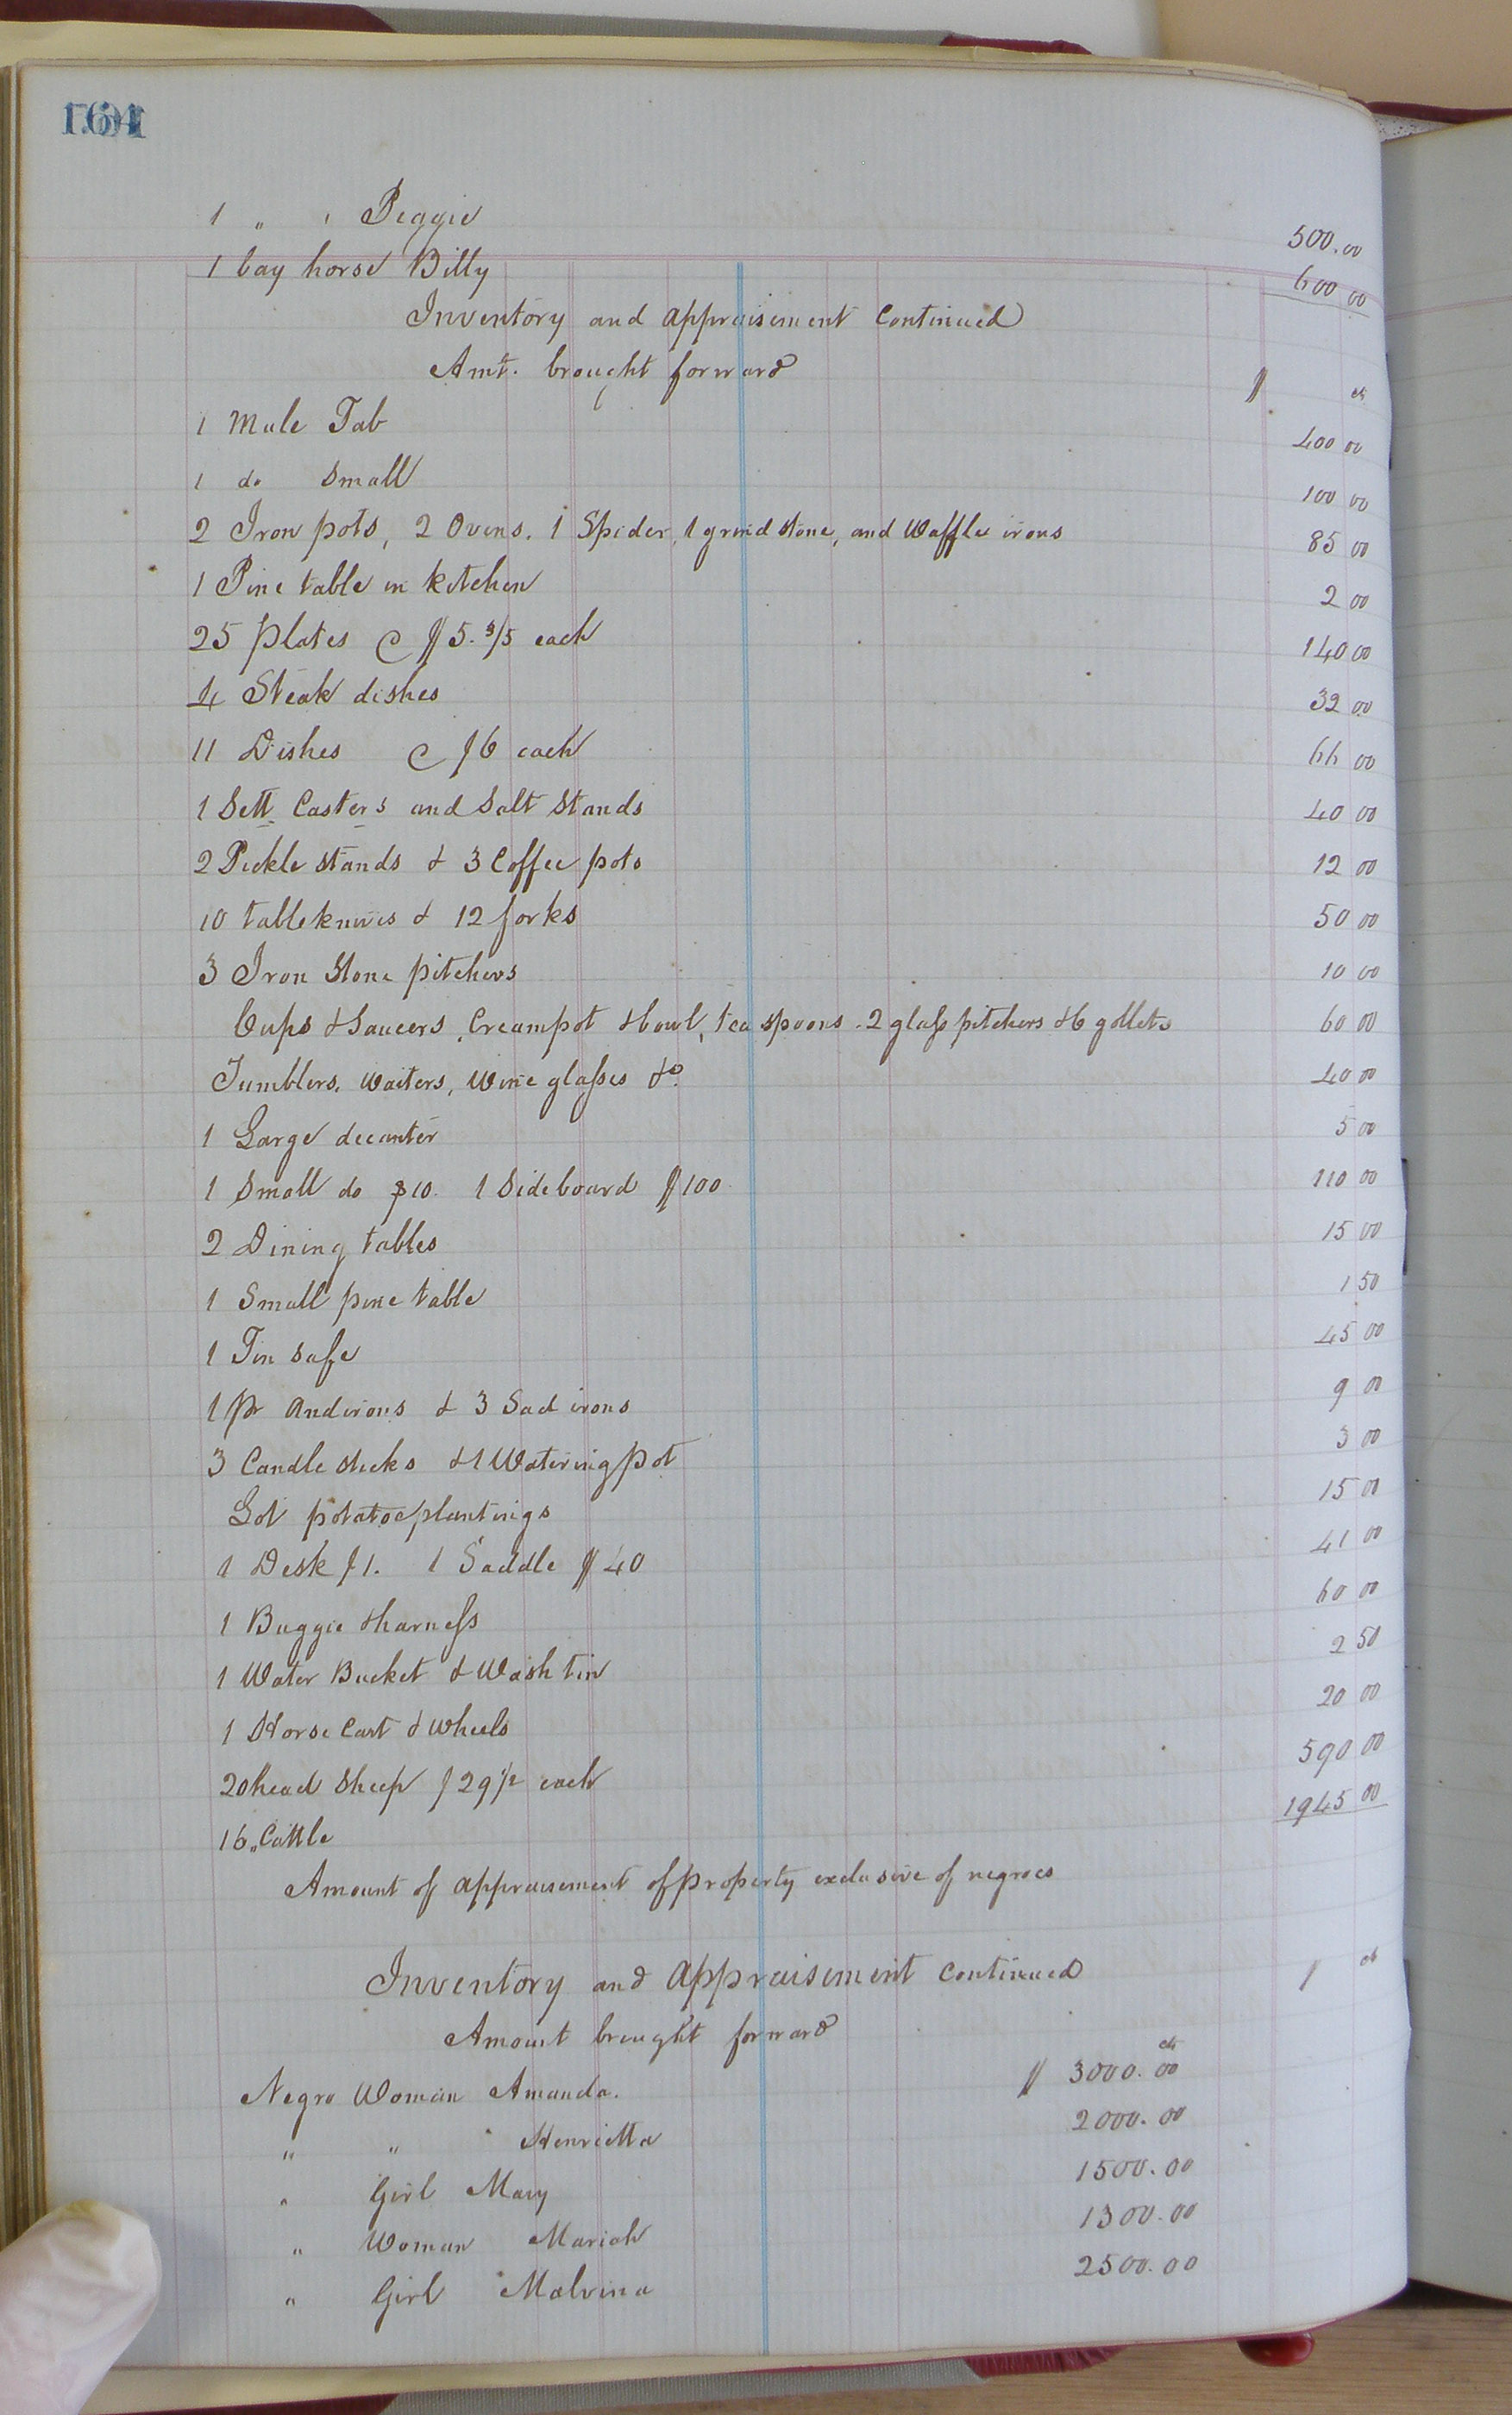 164
1 " " Peggie 500.00
1 bay horse Billy 600 00
Inventory and appraisement Continued
Amt. brought forward $ cts
1 Mule Tab 400 00
1 do Small 100 00
2 Iron pots, 2 Ovens. 1 Spider, 1 grind stone, and Waffle irons 85 00
1 Pine table in kitchen 2 00
25 plates @ $5. 3/5 each 140 00
4 Steak dishes 32 00
11 Dishes @ $6 each 66 00
1 Sett Casters and Salt Stands 40 00
2 Pickle stands & 3 Coffee pots 12 00
10 table knives & 12 forks 50 00
3 Iron Stone pitchers 10 00
Cups & Saucers, Creampot & bowl, tea spoons. 2 glass pitchers & 6 gollets 60 00
Tumblers, Waiters, Wine glasses &c. 40 00
1 Large decanter 5 00
1 Small do $10. 1 Sideboard $100 110 00
2 Dining tables 15 00
1 Small pine table 1 50
1 Tin safe 45 00
1 pr andirons & 3 Sad irons 9 00
3 Candle sticks & 1 Watering pot 3 00
Lot potatoe plantings 15 00
1 Desk $1. 1 Saddle $40 41 00
1 Buggie & harness 60 00
1 Water Bucket & Wash tin 2 50
1 Horse Cart & Wheels 20 00
20 head Sheep $29 1/2 each 590 00
16 " Cattle 1945 00
Amount of appraisement of property exclusive of negroes
Inventory and appraisement continued $ cts
Amount brought forward
Negro Woman Amanda. $ 3000.00 cts
" " " Henrietta 2000.00
" Girl Mary 1500.00
" Woman Mariah 1300.00
" Girl " Malvina 2500.00